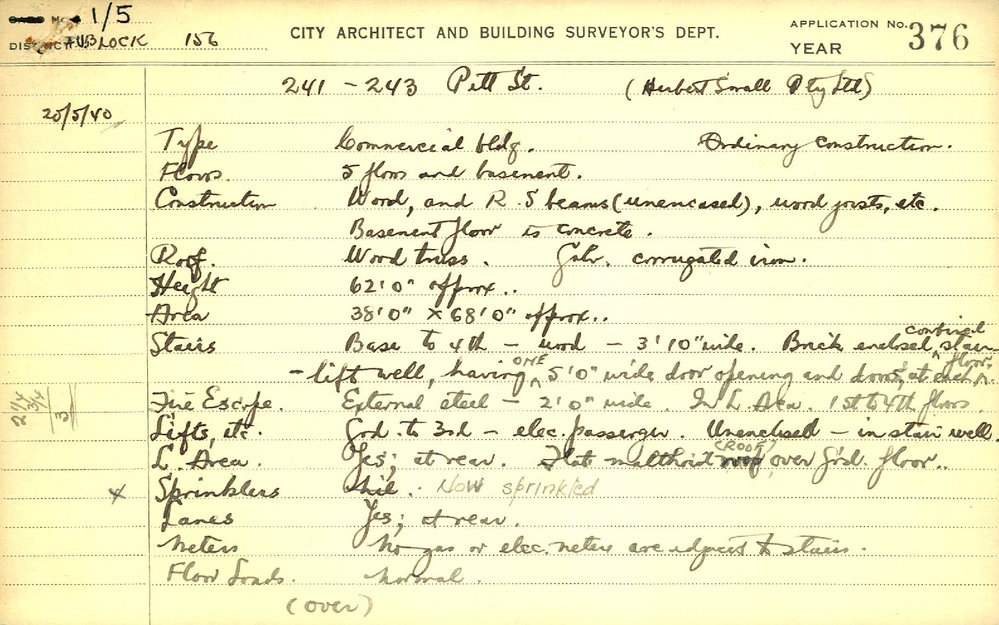 1/5
CITY ARCHITECT AND BUILDING SURVEYOR'S DEPT.
APPLICATION No. 376
YEAR
DISTRICT BLOCK 156
241 - 243 Pitt St. (Herbert Small Pty Ltd)
20/5/40
Type Commercial bldg. Ordinary construction.
Floors. 5 floors and basement.
Construction Wood, and R.S beams (unencased), wood joists, etc.
Basement floor is concrete.
Roof. Wood truss. Galv. corrugated iron.
Height 62'0" approx..
Area 38'0" x 68'0" approx..
Stairs Base to 4th - wood - 3'10" wide. Brick enclosed combined stair
- lift well, having ONE 5'0" wide door opening and doors, at each floor.
2 1/4
3/4
3
Fire Escape. External steel - 2'0" wide. In L. Area. 1st to 4th floors.
Lifts, etc. Grd. to 3rd - elec. passenger. Unenclosed - in stair well.
L. Area. Yes; at rear. Flat malthoid (ROOF) roof, over Grd. floor..
x Sprinklers Nil. Now sprinkled
Lanes Yes; at rear.
Meters No gas or elec. meters are adjacent to stairs.
Floor Loads. Normal.
(over)